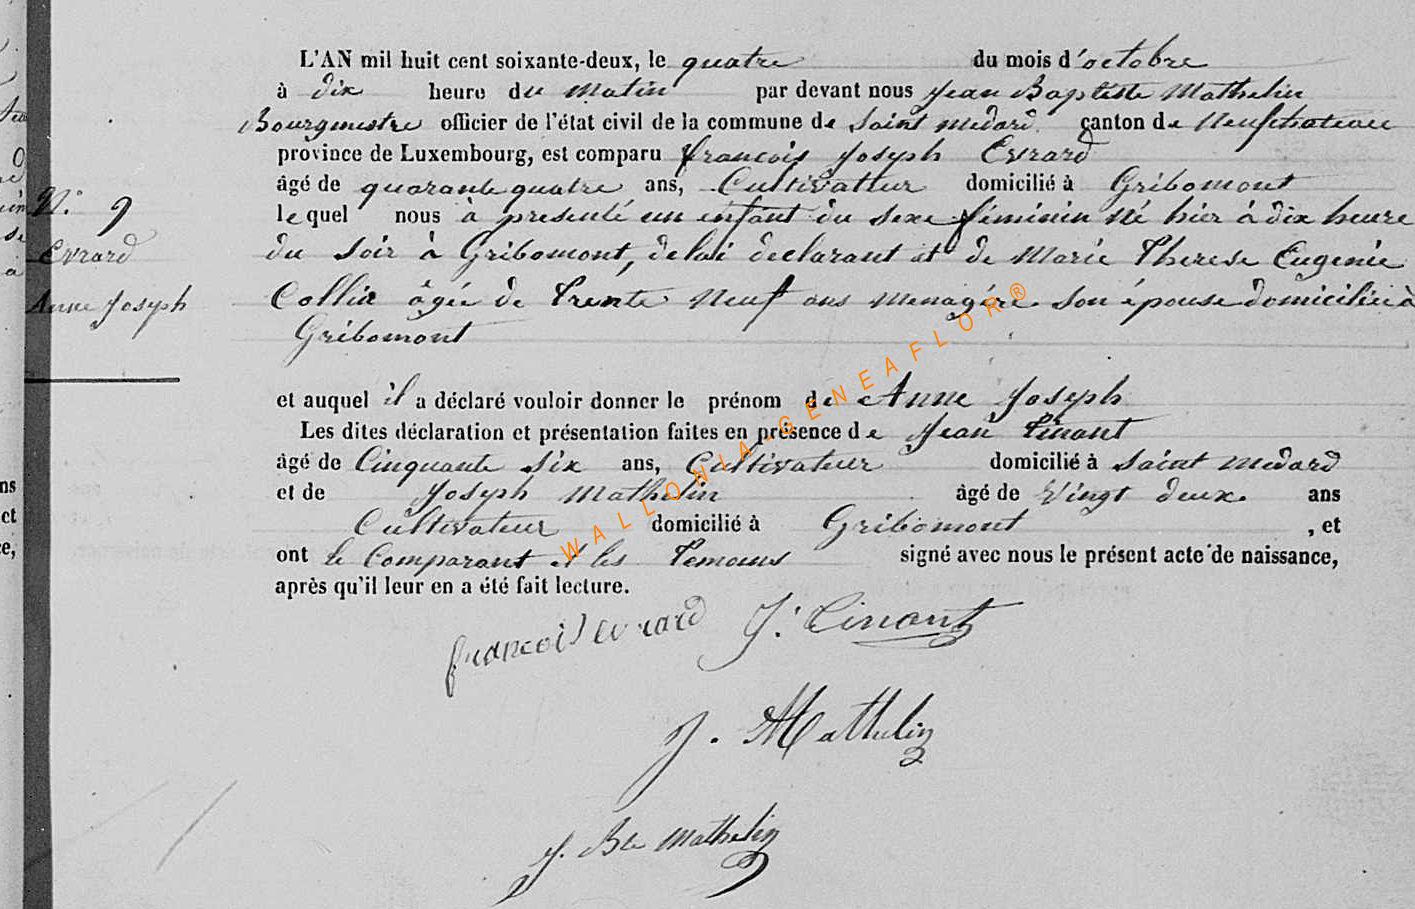 L'AN mil huit cent soixante-deux, le quatre du mois d'octobre
à dix heure du matin par devant nous Jean Baptiste Mathelin
Bourgmestre officier de l'état civil de la commune de Saint Medard canton de Neufchateau
province de Luxembourg, est comparu françois Joseph Evrard
âgé de quarante quatre ans, Cultivateur domicilié à Gribomont
lequel nous à presenté un enfant du sexe féminin né hier à dix heure
du soir à Gribomont, de lui declarant et de Marie Therese Eugenie
Collin âgée de Trente Neuf ans menagére son épouse domiciliée à
Gribomont
N° 9
Evrard
Anne Joseph
et auquel il a déclaré vouloir donner le prénom de Anne Joseph
Les dites déclaration et présentation faites en présence de Jean Tinant
âgé de Cinquante six ans, Cultivateur domicilié à Saint Medard
et de Joseph Mathelin âgé de Vingt deux ans
Cultivateur domicilié à Gribomont , et
ont le Comparant et les Temoins signé avec nous le présent acte de naissance,
après qu'il leur en a été fait lecture.
françois Evrard J. Tinant
J. Mathelin
J. Bte Mathelin
WALLONIA-GENEAFLOR®